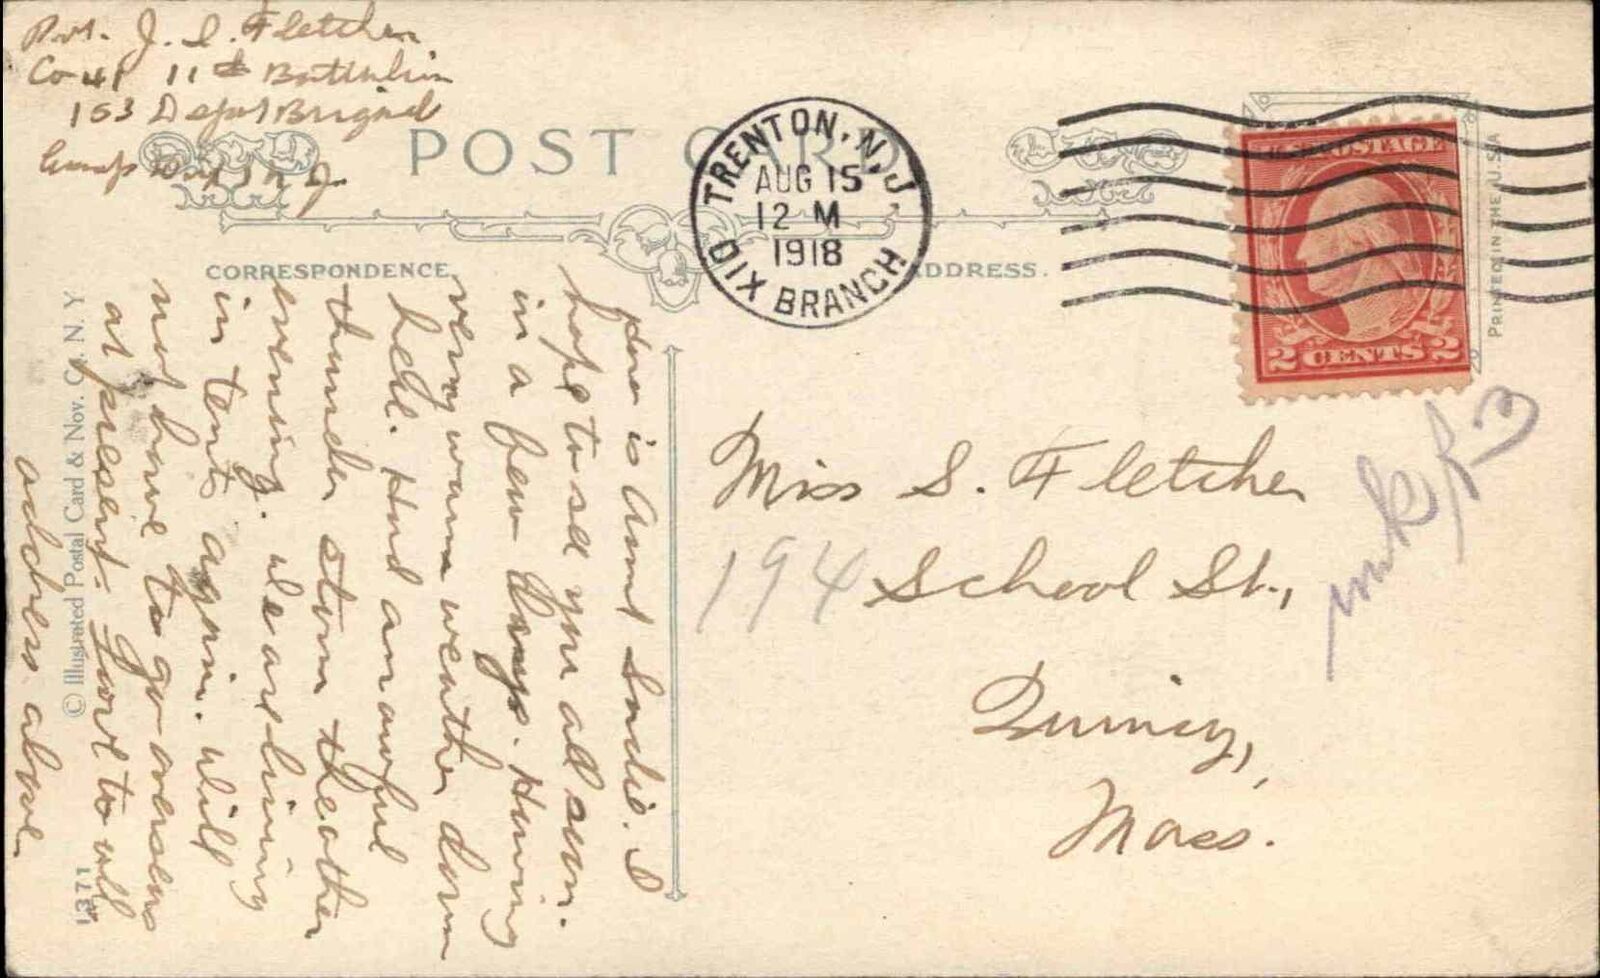 Pvt. J. S. Fletcher
Co 41 11th Battalion
153 Depot Brigade
Camp Dix N J.
POST CARD
CORRESPONDENCE
ADDRESS.
TRENTON, N.J.
AUG 15
12 M
1918
DIX BRANCH
U.S. POSTAGE
2 CENTS 2
PRINTED IN THE U.S.A
Dear is Aunt Sadie. I
hope to see you all soon.
in a few days. Having
very warm weather down
here. Had an awful
thunder storm the other
evening. We are living
in tents again. Will
not have to go overseas
at present. Love to all
address above
Miss S. Fletcher
194 School St.,
Quincy,
Mass.
© Illustrated Postal Card & Nov. Co. N. Y
1371